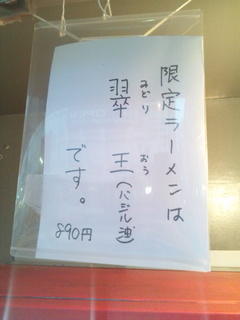 限定ラーメンは
翠王(バジル油)
みどりおう
です。
890円